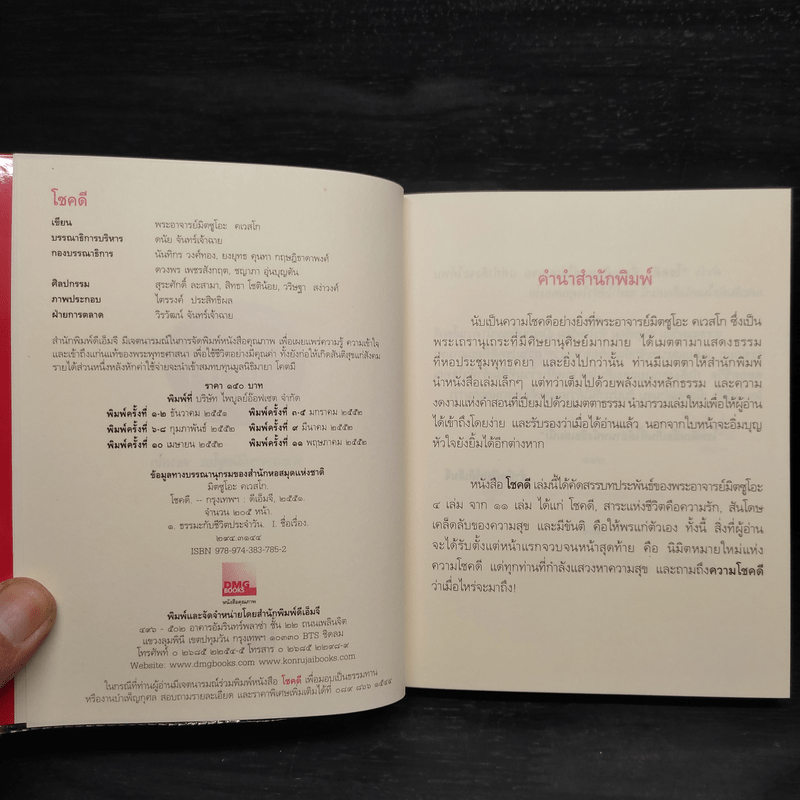 โชคดี
เขียน พระอาจารย์มิตซูโอะ คเวสโก
บรรณาธิการบริหาร ดนัย จันทร์เจ้าฉาย
กองบรรณาธิการ นันทิกร วงศ์ทอง, ยงยุทธ คุนทา กฤษฎิธาดาพงศ์
ดวงพร เพชรสังกฤต, ชญาภา อุ่นบุญตัน
ศิลปกรรม สุระศักดิ์ ละสามา, สิทธา โชติน้อย, วริษฐา สง่าวงศ์
ภาพประกอบ ไตรรงค์ ประสิทธิผล
ฝ่ายการตลาด วิรวัฒน์ จันทร์เจ้าฉาย
สำนักพิมพ์ดีเอ็มจี มีเจตนารมณ์ในการจัดพิมพ์หนังสือคุณภาพ เพื่อเผยแพร่ความรู้ ความเข้าใจ
และเข้าถึงแก่นแท้ของพระพุทธศาสนา เพื่อใช้ชีวิตอย่างมีคุณค่า ทั้งยังก่อให้เกิดสันติสุขแก่สังคม
รายได้ส่วนหนึ่งหลังหักค่าใช้จ่ายจะนำเข้าสมทบทุนมูลนิธิมายา โคตมี
ราคา ๑๔๐ บาท
พิมพ์ที่ บริษัท ไพบูลย์อ๊อฟเซต จำกัด
พิมพ์ครั้งที่ ๑-๒ ธันวาคม ๒๕๕๑ พิมพ์ครั้งที่ ๓-๕ มกราคม ๒๕๕๒
พิมพ์ครั้งที่ ๖-๘ กุมภาพันธ์ ๒๕๕๒ พิมพ์ครั้งที่ ๙ มีนาคม ๒๕๕๒
พิมพ์ครั้งที่ ๑๐ เมษายน ๒๕๕๒ พิมพ์ครั้งที่ ๑๑ พฤษภาคม ๒๕๕๒
ข้อมูลทางบรรณานุกรมของสำนักหอสมุดแห่งชาติ
มิตซูโอะ คเวสโก.
โชคดี. -- กรุงเทพฯ : ดีเอ็มจี, ๒๕๕๑.
จำนวน ๒๐๕ หน้า.
๑. ธรรมะกับชีวิตประจำวัน. I. ชื่อเรื่อง.
๒๙๔.๓๑๔๔
ISBN 978-974-383-785-2
DMG
BOOKS
หนังสือคุณภาพ
พิมพ์และจัดจำหน่ายโดยสำนักพิมพ์ดีเอ็มจี
๔๙๖ - ๕๐๒ อาคารอัมรินทร์พลาซ่า ชั้น ๒๒ ถนนเพลินจิต
แขวงลุมพินี เขตปทุมวัน กรุงเทพฯ ๑๐๓๓๐ BTS ชิดลม
โทรศัพท์ ๐ ๒๖๘๕ ๒๒๕๔-๕ โทรสาร ๐ ๒๖๘๕ ๒๒๙๘-๙
Website: www.dmgbooks.com www.konrujaibooks.com
ในกรณีที่ท่านผู้อ่านมีเจตนารมณ์ร่วมพิมพ์หนังสือ โชคดี เพื่อมอบเป็นธรรมทาน
หรืองานบำเพ็ญกุศล สอบถามรายละเอียด และราคาพิเศษเพิ่มเติมได้ที่ ๐๘๙ ๘๖๖ ๑๕๔๔
คำนำสำนักพิมพ์
นับเป็นความโชคดีอย่างยิ่งที่พระอาจารย์มิตซูโอะ คเวสโก ซึ่งเป็น
พระเถรานุเถระที่มีศิษยานุศิษย์มากมาย ได้เมตตามาแสดงธรรม
ที่หอประชุมพุทธคยา และยิ่งไปกว่านั้น ท่านมีเมตตาให้สำนักพิมพ์
นำหนังสือเล่มเล็กๆ แต่ทว่าเต็มไปด้วยพลังแห่งหลักธรรม และความ
งดงามแห่งคำสอนที่เปี่ยมไปด้วยเมตตาธรรม นำมารวมเล่มใหม่เพื่อให้ผู้อ่าน
ได้เข้าถึงโดยง่าย และรับรองว่าเมื่อได้อ่านแล้ว นอกจากใบหน้าจะอิ่มบุญ
หัวใจยังยิ้มได้อีกต่างหาก
หนังสือ โชคดี เล่มนี้ได้คัดสรรบทประพันธ์ของพระอาจารย์มิตซูโอะ
๔ เล่ม จาก ๑๑ เล่ม ได้แก่ โชคดี, สาระแห่งชีวิตคือความรัก, สันโดษ
เคล็ดลับของความสุข และมีขันติ คือให้พรแก่ตัวเอง ทั้งนี้ สิ่งที่ผู้อ่าน
จะได้รับตั้งแต่หน้าแรกจวบจนหน้าสุดท้าย คือ นิมิตหมายใหม่แห่ง
ความโชคดี แด่ทุกท่านที่กำลังแสวงหาความสุข และถามถึงความโชคดี
ว่าเมื่อไหร่จะมาถึง!